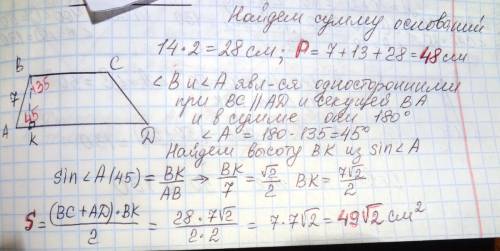 Найдем сумму оснований
14·2=28см; P=7+13+28=48см
B C
135
7
45
A K D
∠B и ∠A явл-ся односторонними
при BC∥AD и секущей BA
и в сумме они 180°
∠A°=180-135=45°
Найдем высоту BK из sin∠A
sin∠A(45)=BK/AB → BK/7=√2/2 BK=7√2/2
S=(BC+AD)·BK/2=28·7√2/2·2=7·7√2=49√2см²